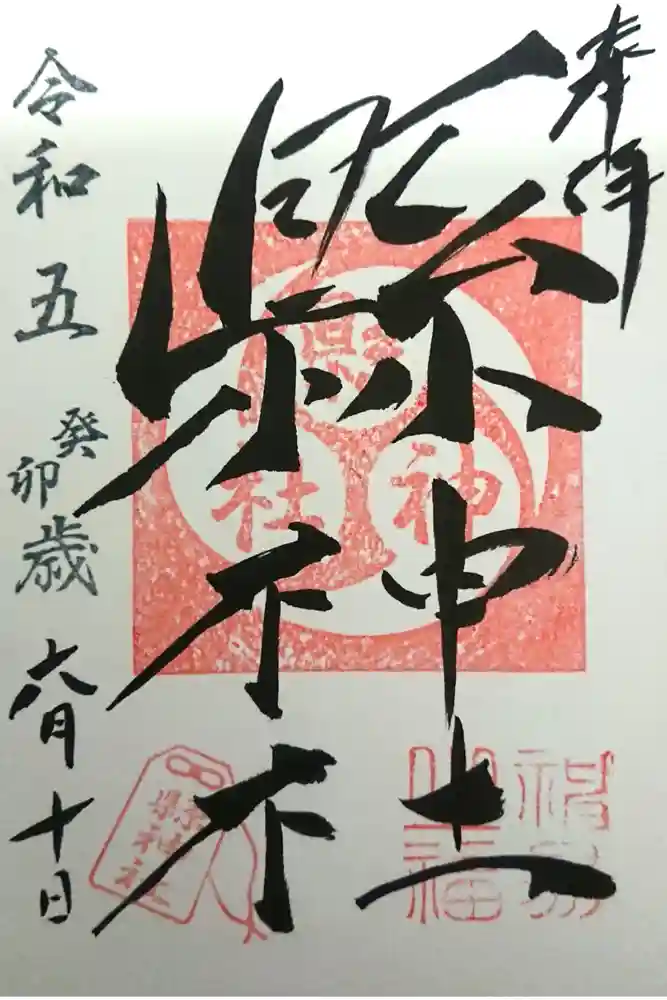 奉拝
縣神社
令和五癸卯歳六月十日
縣神社
縣神社